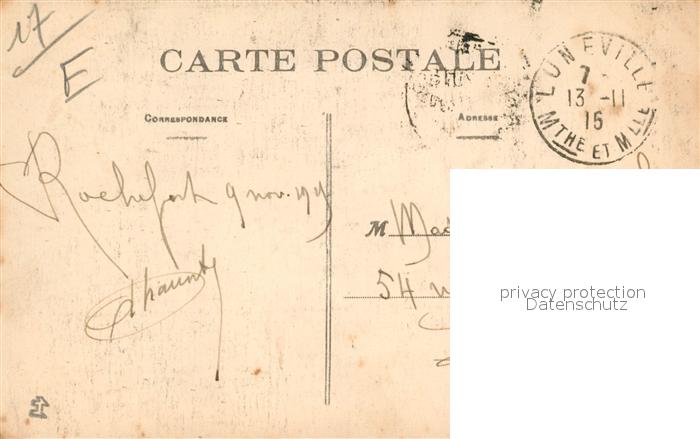 17
E
CARTE POSTALE
LUNEVILLE
7
13 -11
15
MTHE ET MLLE
CORRESPONDANCE
ADRESSE
Rochefort 9 nov. 1915
M Mad
54
privacy protection
Datenschutz